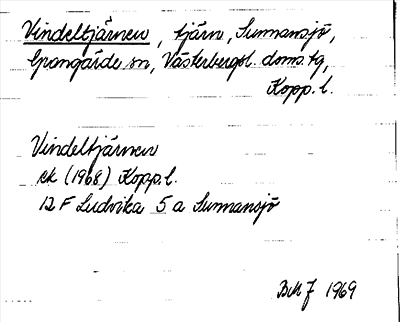 Vindeltjärnen, tjärn, Sunnansjö,
Grangärde sn, Västerbergsl. doms. tg,
Kopp. l.
Vindeltjärnen
ek (1968) Kopp. l.
12 F Ludvika 5 a Sunnansjö
1969